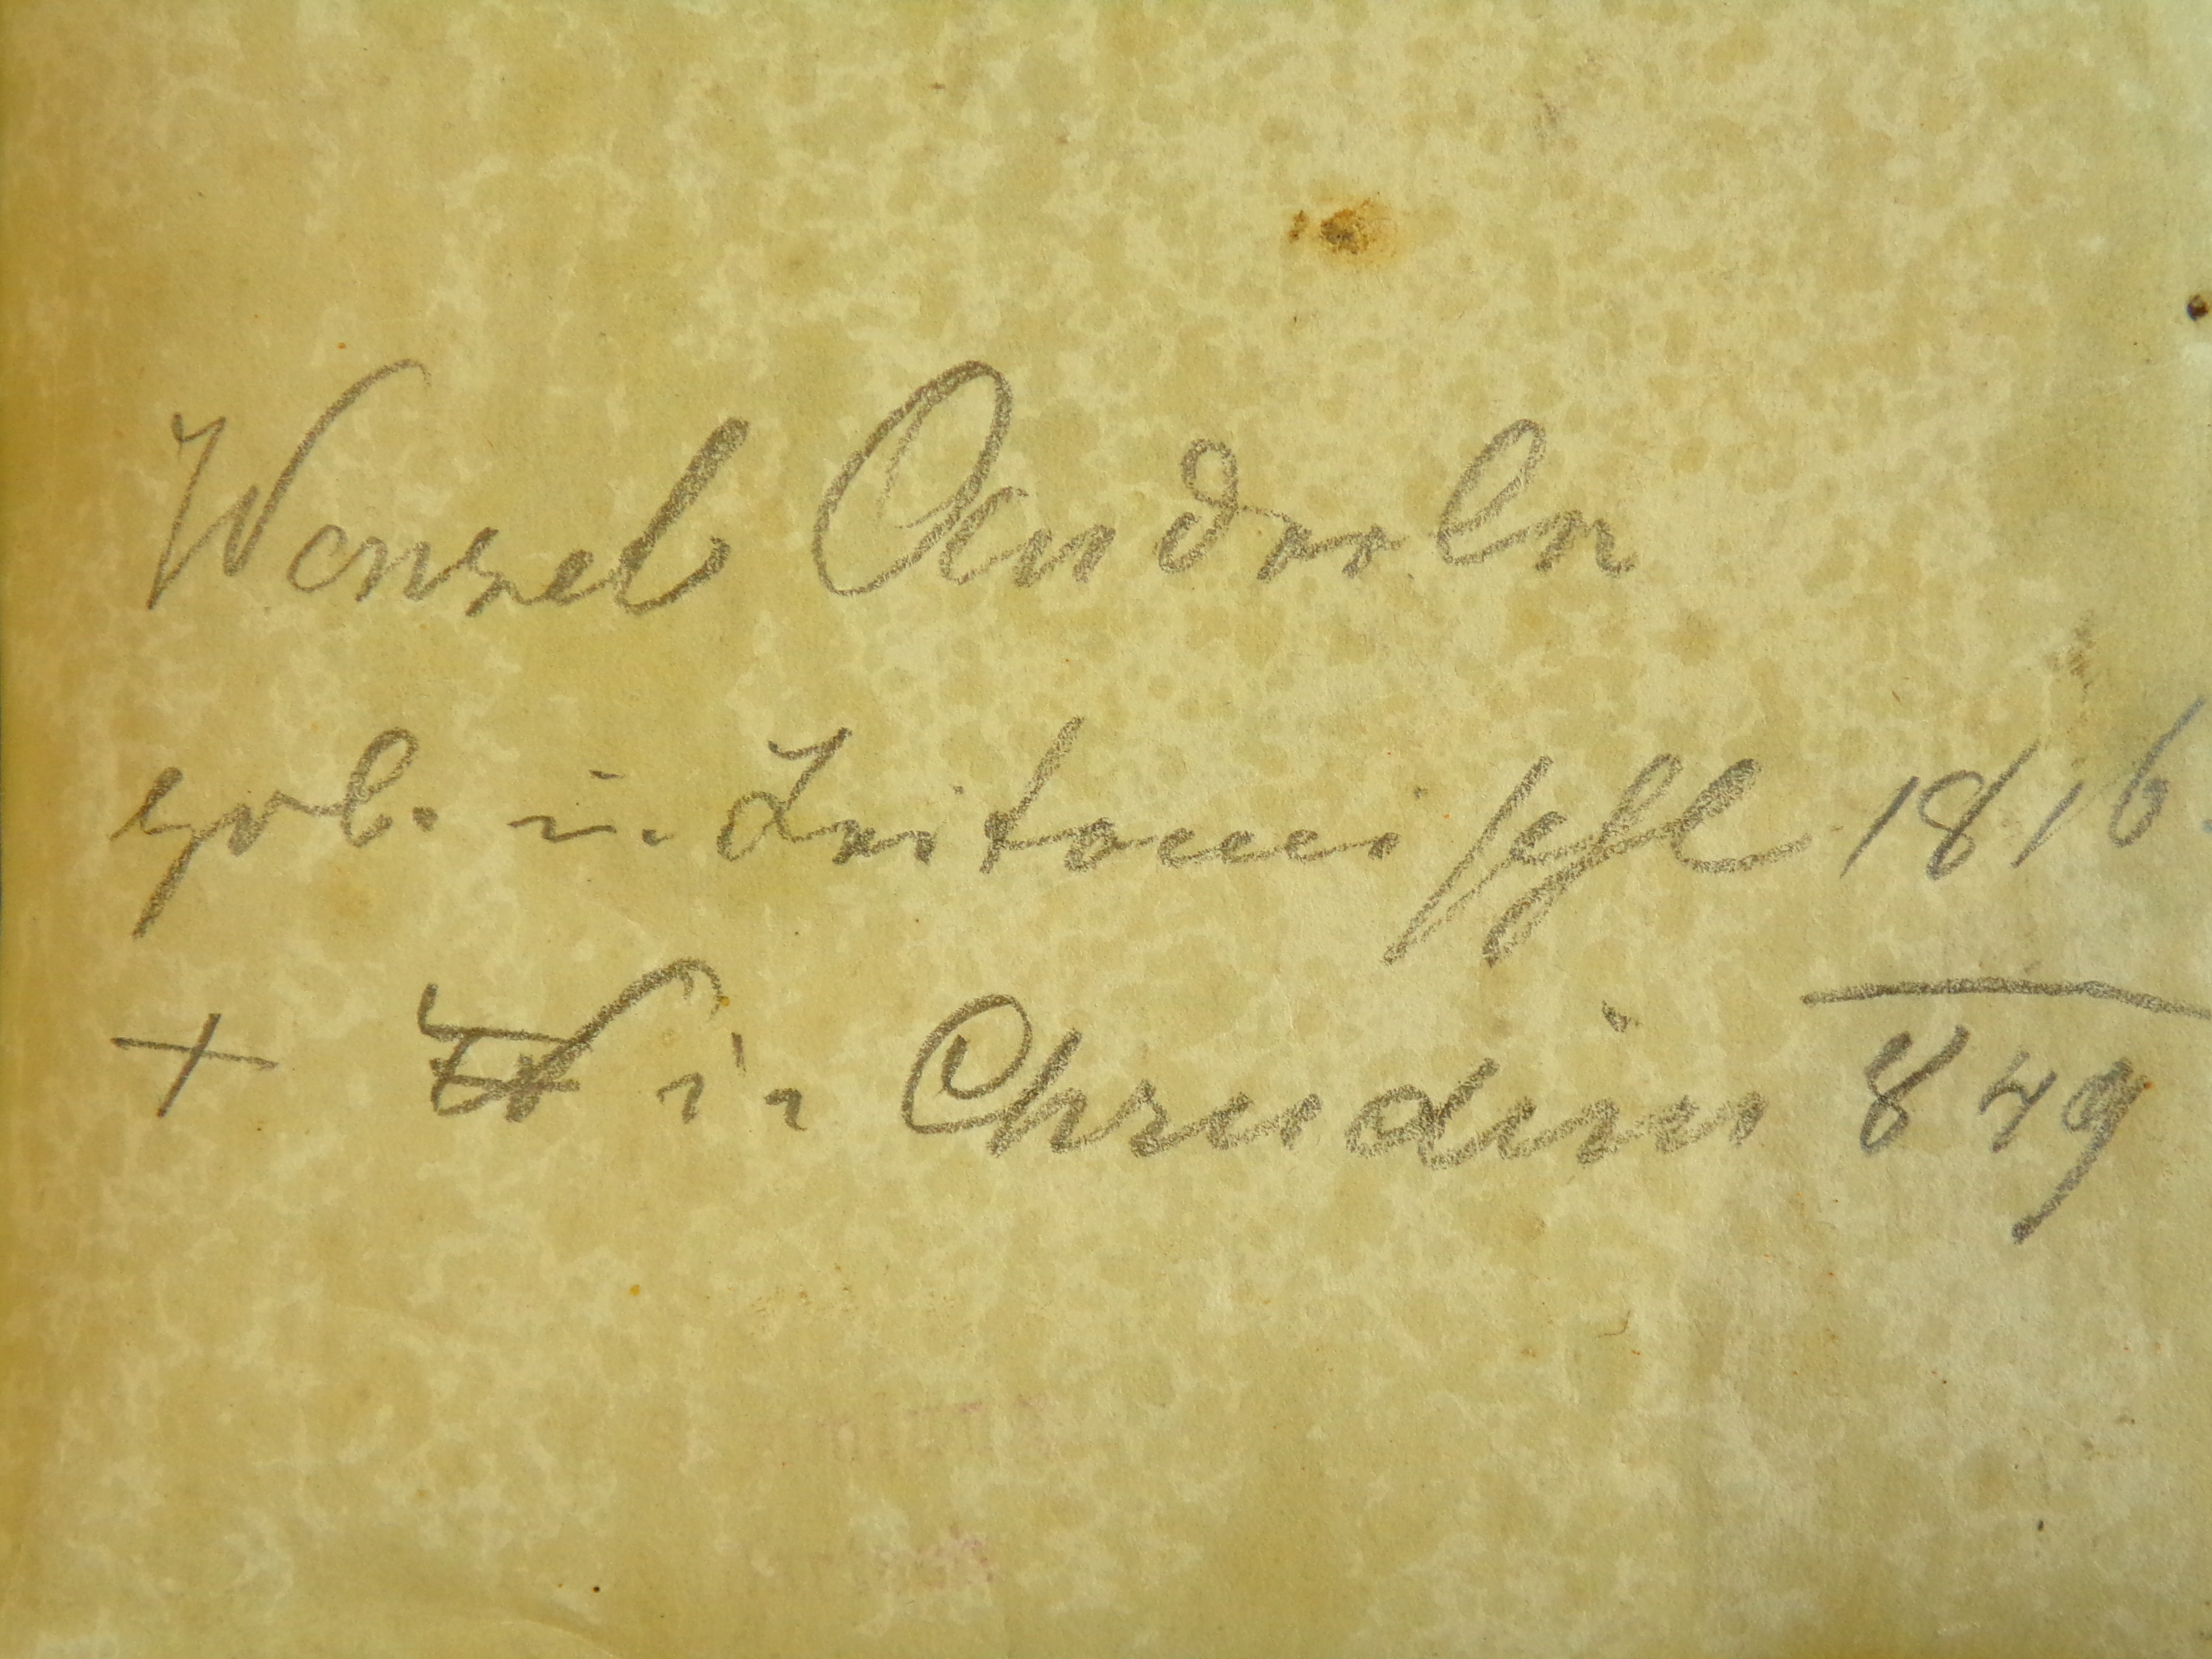 Wenzel Anderle
geb. in Leitomischl 1816
+ in Chrudim 849